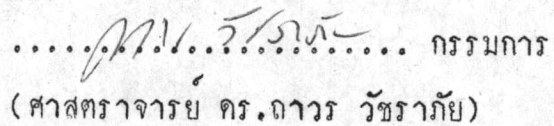 ........................ กรรมการ
(ศาสตราจารย์ ดร.ถาวร วัชราภัย)